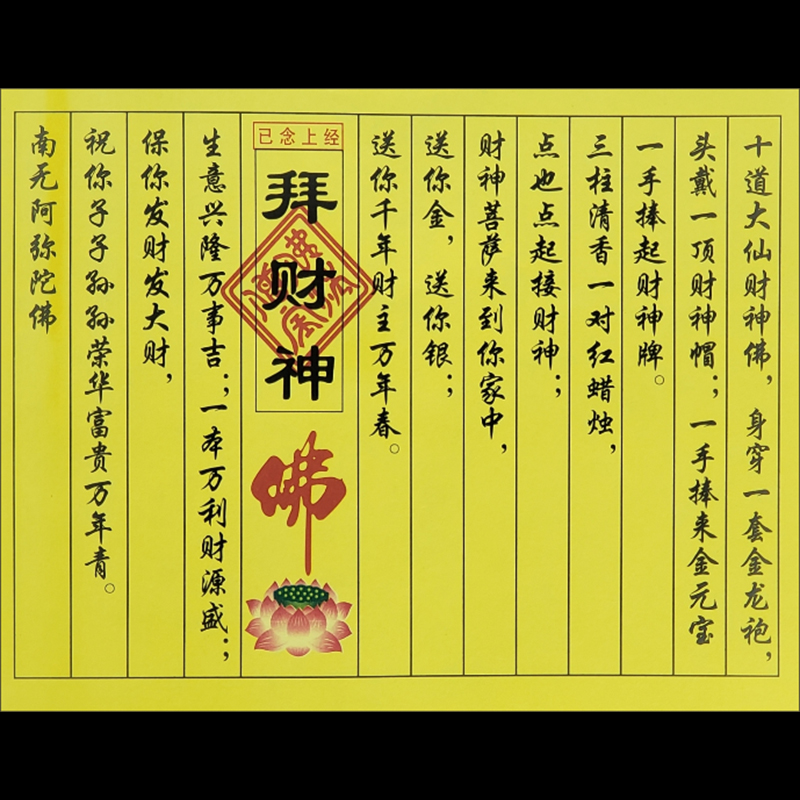 十道大仙财神佛，身穿一套金龙袍，
头戴一顶财神帽；一手捧来金元宝
一手捧起财神牌。
三柱清香一对红蜡烛，
点也点起接财神；
财神菩萨来到你家中，
送你金，送你银；
送你千年财主万年春。
已念上经
拜财神
佛
生意兴隆万事吉；一本万利财源盛；
保你发财发大财，
祝你子子孙孙荣华富贵万年青。
南无阿弥陀佛